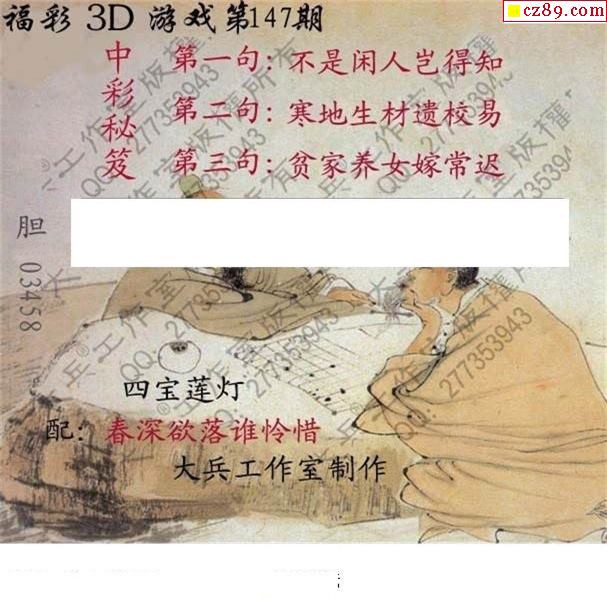 福彩 3D 游戏第147期
cz89.com
中彩秘笈
第一句：不是闲人岂得知
第二句：寒地生材遗校易
第三句：贫家养女嫁常迟
胆 03458
四宝莲灯
配：春深欲落谁怜惜
大兵工作室制作
大兵工作室版权所有
QQ:277353943